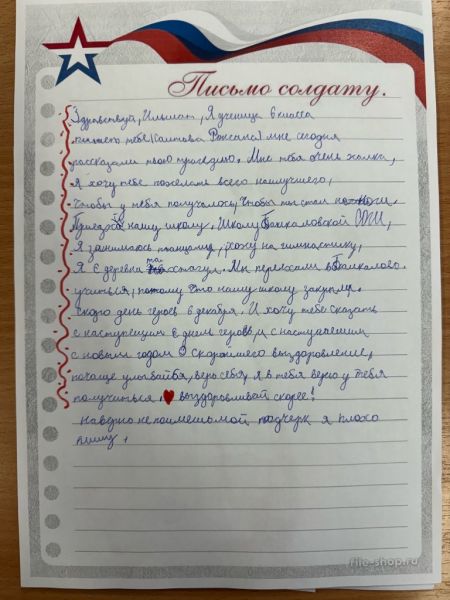 Письмо солдату.
Здравствуй, Ильшат, Я ученица 6 класса
пишет тебе (Саитова Роксана) мне сегодня
рассказали твою трагедию. Мне тебя очень жалка,
Я хочу тебе пожелать всего наилучшего,
Чтобы у тебя получалось, Чтобы ты стал на ноги.
Приезжай в нашу школу, Школу Байкаловской СОШ,
Я занимаюсь танцами, хожу на гимнастику,
Я с деревни
учиться, потому что нашу школу закрыли.
Скоро день героев 6 декабря. И хочу тебе сказать
с наступающим днем героев, и с наступлением
с новым годом Скорейшего выздоровление,
почаще улыбайся, верь себя, я в тебя верю у тебя
получиться, ♥ выздоравливай скорее!
Наверно не поймешь мой подчерк я плохо
пишу.
file-shop.ru